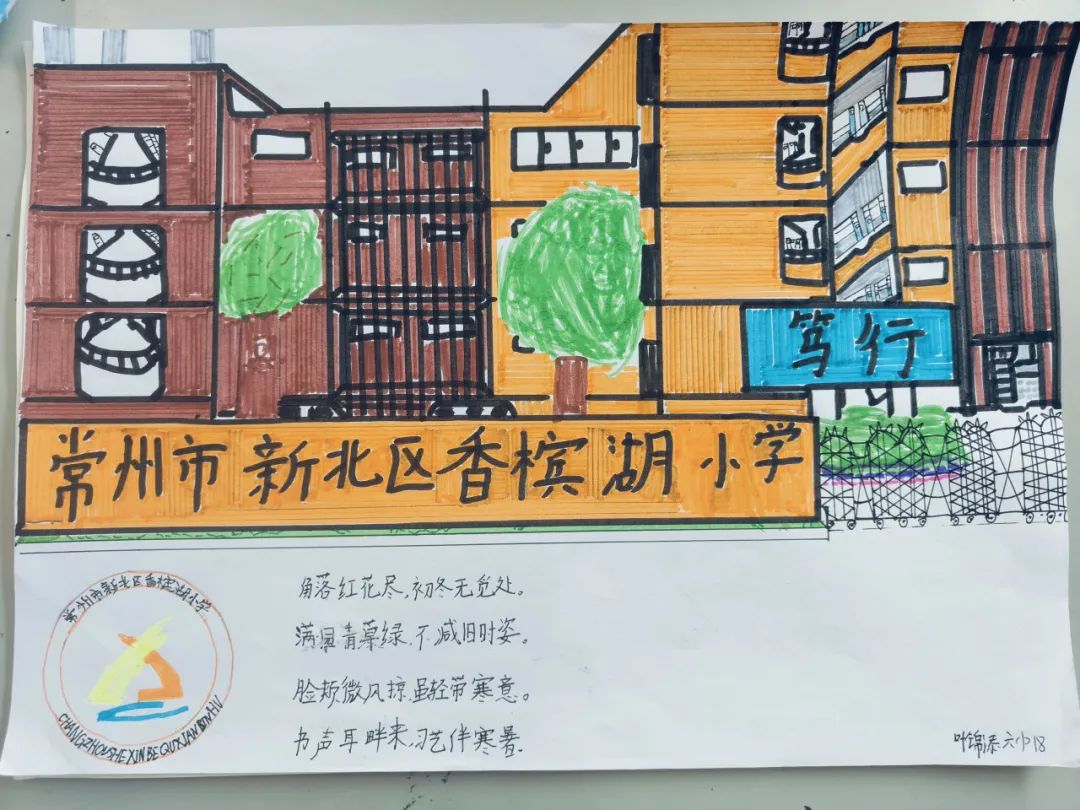 笃行
常州市新北区香槟湖小学
常州市新北区香槟湖小学
CHANGZHOUSHEXINBEQUXIANBINHU
角落红花尽，初冬无觅处。
满园青草绿，不减旧时姿。
脸颊微风掠，虽轻带寒意。
书声耳畔来，习艺伴寒暑。
叶锦添 六